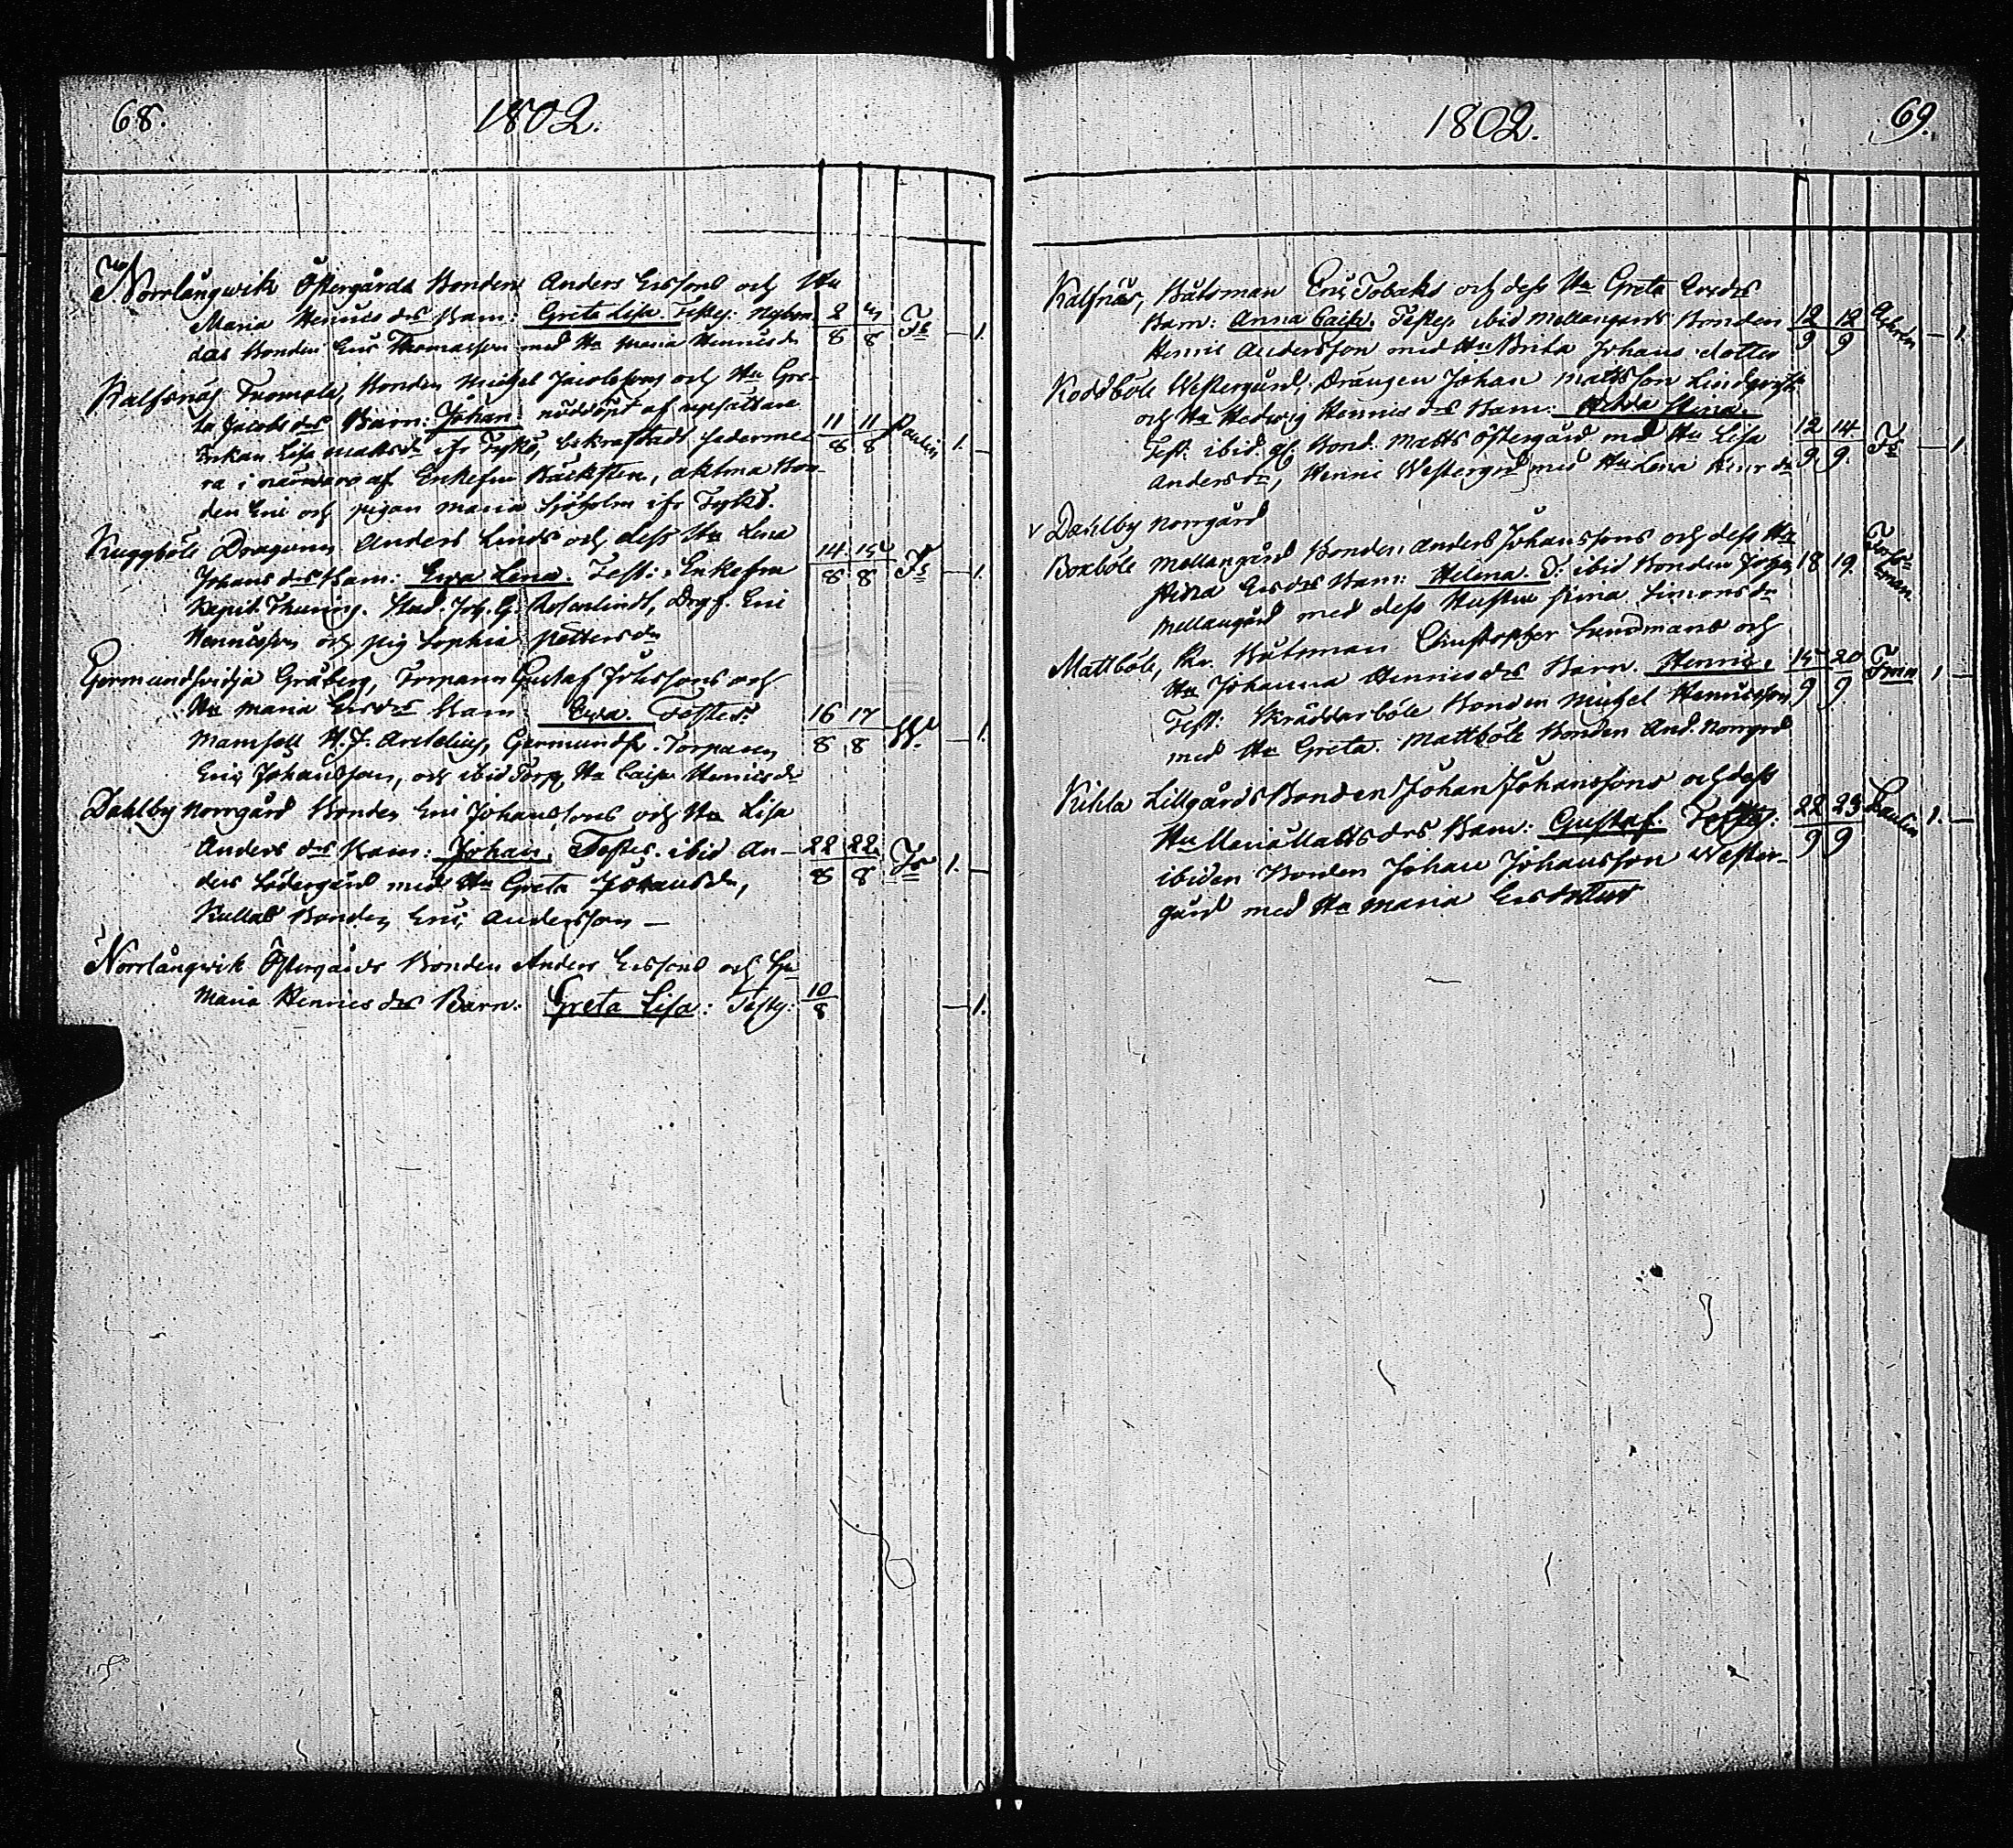 68.
1802.
Norrlångwik Östergårds Bonden Anders Erssons och Hu
Maria Henricsdrs Barn: Greta Lisa. Testes: Nybon-
das Bonden Eric Thomasson med Hu Maria Henricsdr
2 4 8 8 Fs — 1.
Kalfsnäs Bonden Michel Jacobssons och Hu Gre-
ta Jacobsdrs Barn: Johan: nöddöpt af
Enkan Lisa Mattsdr ifr Tyskö,
ra i närwaro af Enkefru Bäcksten, Bon-
den Eric och pigan Maria Sjöholm ifr
11 11 8 8 Paulin 1. —
Kuggböle Dragonen Anders Linds och dess Hu Lena
Johansdrs Barn: Ewa Lena. Test: Enkefru
Kapit. Thuring. Stud. Joh. G. Rosenlindt, Eric
Henricsson och pig Sophia Pettersdr
14 15 8 8 Fs — 1.
Germundsvidja Gråberg, Torparen Gustaf Johssons och
Hu Maria Ersdrs Barn Ewa. Testes:
Mamsell H. J. Germunds. Torparen
Eric Johansson, och ibid Torp. Hu Caisa Henricsdr
16 17 8 8 — 1.
Dahlby Norrgård Bonden Eric Johanssons och Hu Lisa
Andersdrs Barn: Johan. Testes. ibid An-
ders Södergård med Hu Greta Johansdr,
Kullas Bonden Eric Andersson —
22 22 8 8 Fs 1. —
Norrlångwik Östergårds Bonden Anders Erssons och Hu
Maria Henricsdrs Barn: Greta Lisa: Testes:
10 8 — 1.
1802.
69.
Kalfnäs, Båtsman Eric Tobaks och dess Hu Greta Ersdrs
Barn: Anna Caisa. Testes. ibid Mellangårds Bonden
Henric Andersson med Hu Brita Johans dotter
12 12 9 9 — 1.
Koddböle Westergård, Drängen Johan Mattsson Lindqvists
och Hu Hedwig Henricsdrs Barn: Stina.
Test: ibid. gl. Bond. Matts Östergård med Hu Lisa
Andersdr, Henric Westergrd med Hu Lena Henrsdr
12 14 9 9. Fs — 1.
v Dahlby Norrgård
Boxböle Mellangård Bonden Anders Johanssons och dess Hu
Stina Ersdrs Barn: Helena. T: ibid Bonden Johan
Mellangård med dess Hustru Stina Simonsdr
18 19.
Mattböle, Kr. Båtsman Christopher Sundmans och
Hu Johanna Henricsdrs Barn. Henric.
Test: Skräddarböle Bonden Michel Henricsson
med Hu Greta. Mattböle Bonden And. Norrgrd
15 20 9 9. 1 —
Kihla Lillgårds Bonden Johan Johanssons och dess
Hu Maria Mattsdrs Barn: Gustaf. Testes:
ibidem Bonden Johan Johansson Wester-
gård med Hu Maria Ersdotter
22 23 9 9 Paulin 1. —